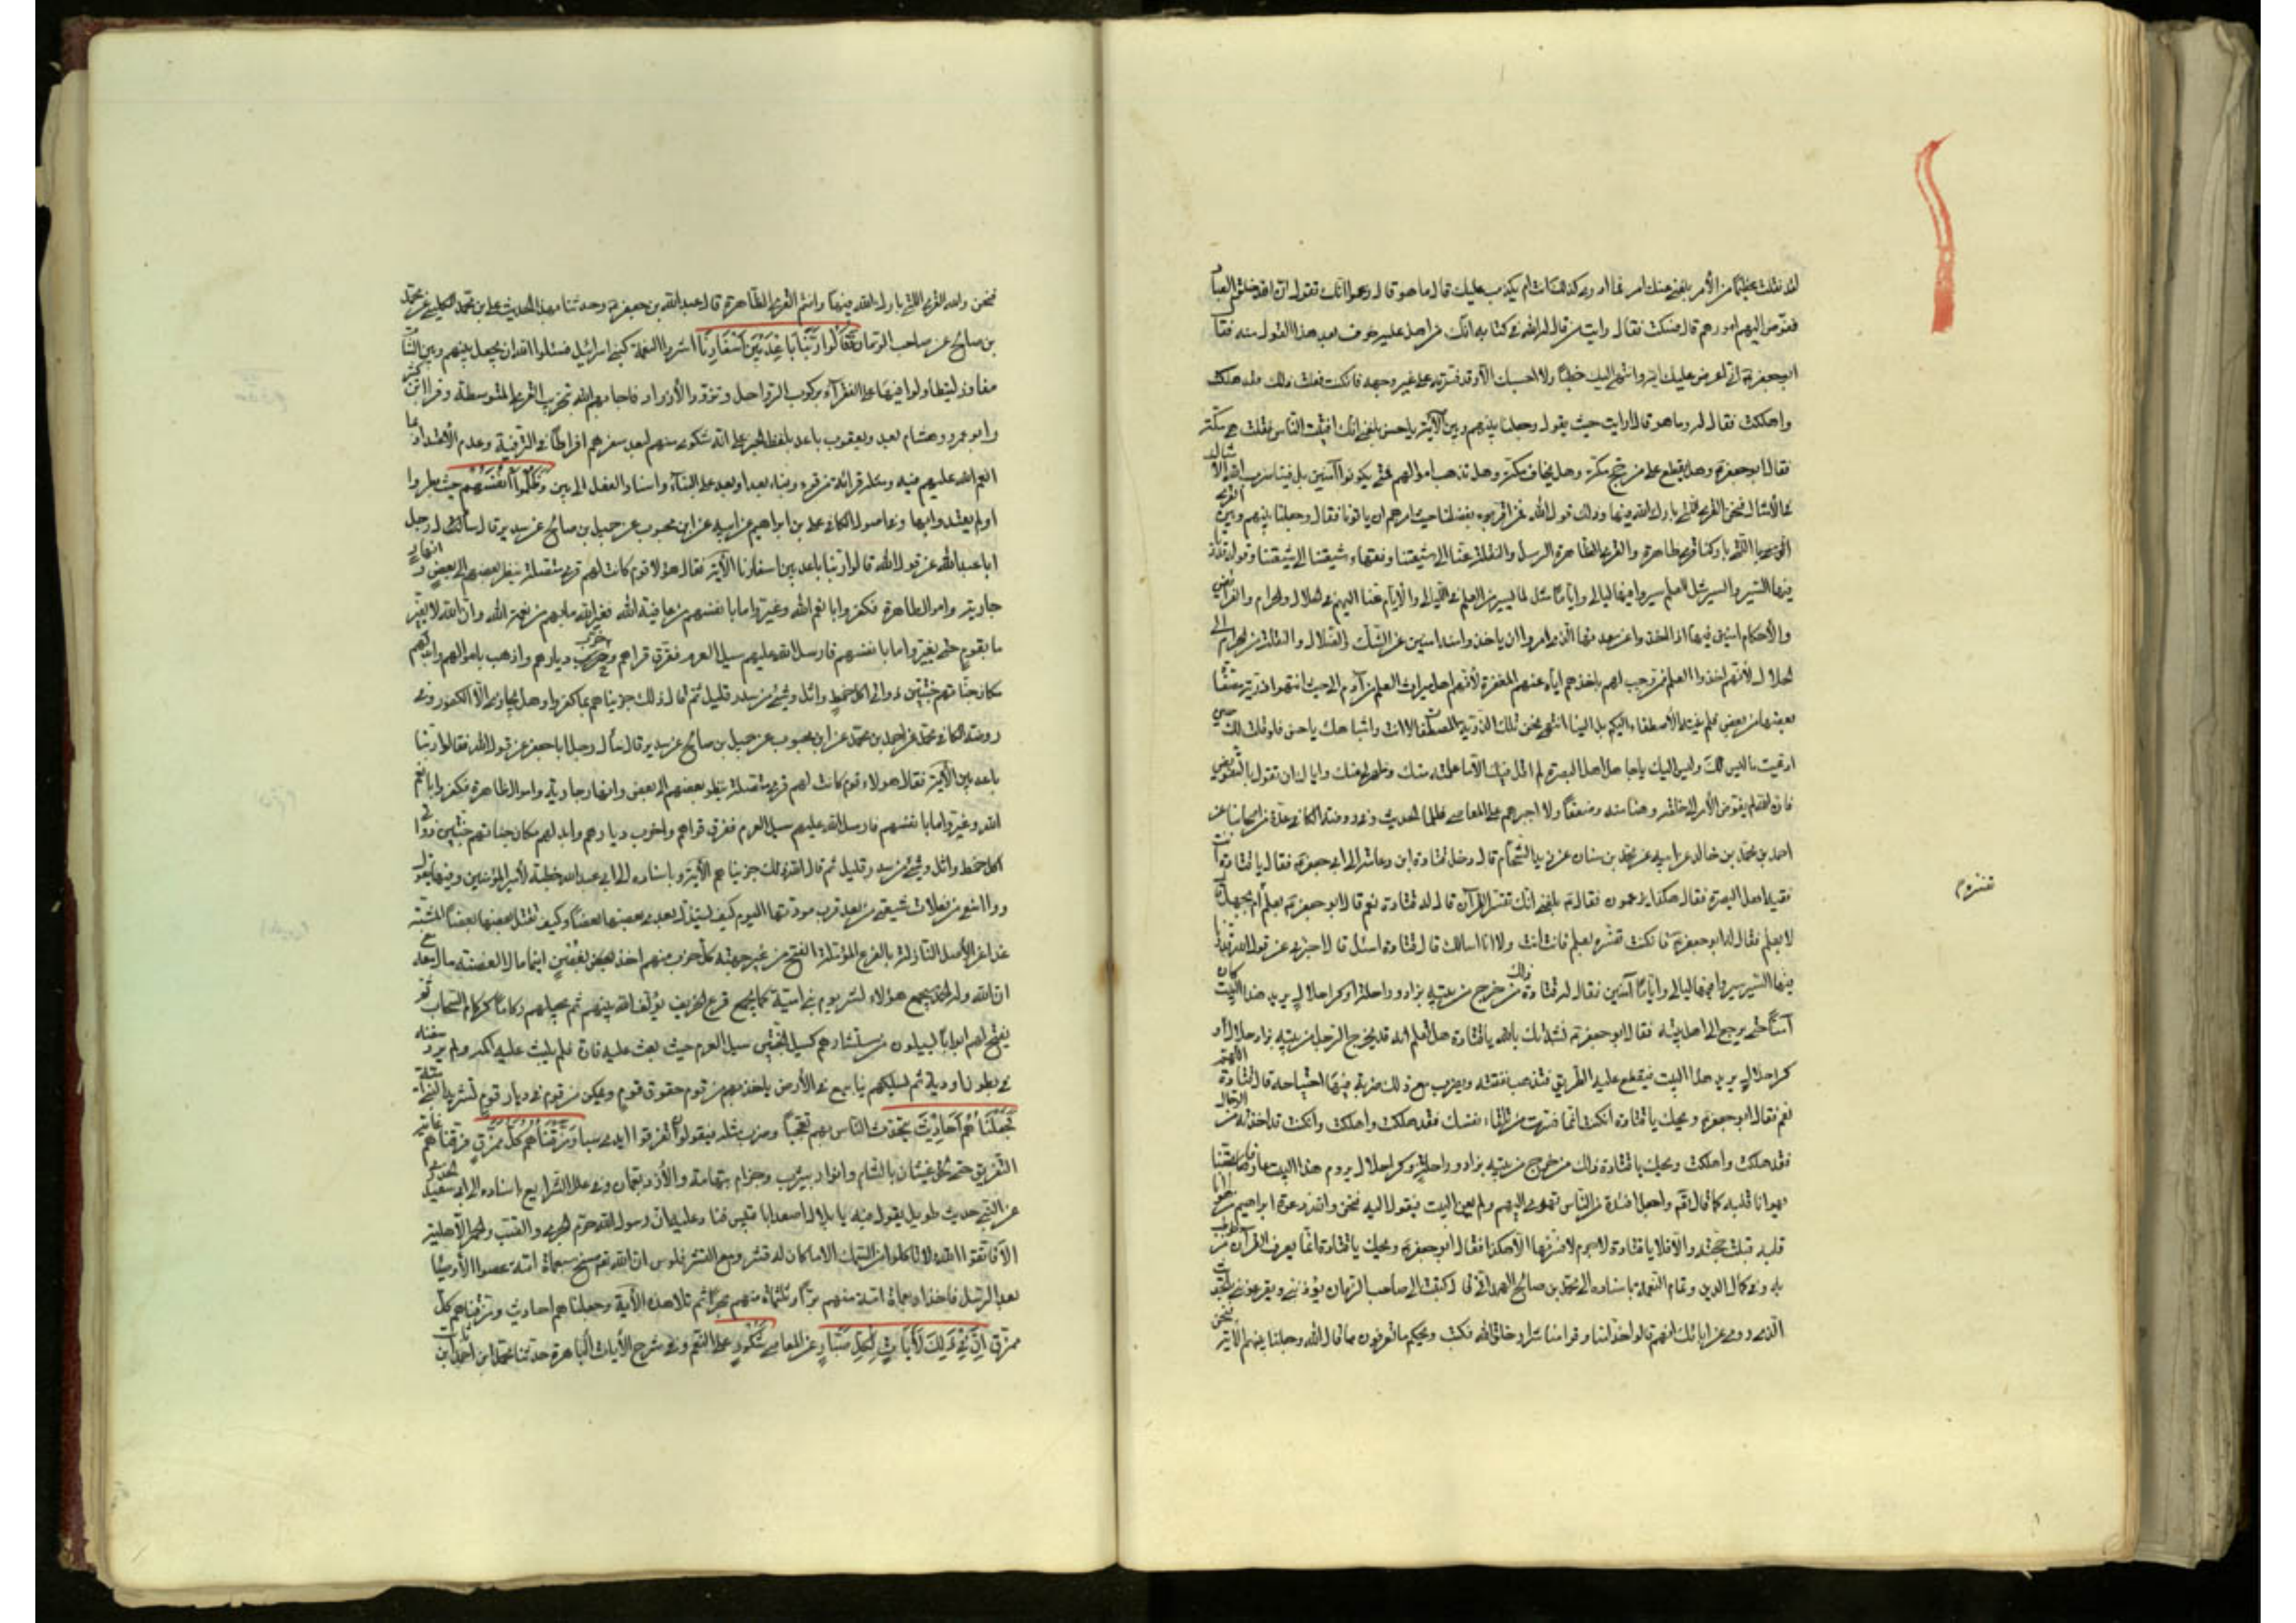 لقد تقلدت عظيما من الأمر بلغني عنك امر فما ادري كذلك انت ام يكذب عليك قال ما هو قال زعموا انك تقول ان الله خلق العباد
ففوض اليهم امورهم قال فسكت فقال رايت من قال الله له في كتابه انك آمن هل عليه خوف بعد هذا القول منه فقال
ابو جعفر ع اني اعرض عليك آية وانهي اليك خطبا ولا احسبك الا وقد فسرته على غير وجهه فان كنت فعلت ذلك فقد هلكت
واهلكت فقال له وما هو قال ارايت حيث يقول وجعلنا بينهم وبين الآية يا حسن بلغني انك افتيت الناس فقلت هي مكة
فقال ابو جعفر ع وهل يقطع على من حج مكة وهل يخاف اهل مكة وهل تذهب اموالهم فمتى يكونوا آمنين بل فينا ضرب الله الأمثال
فنحن القرى التي بارك الله فيها وذلك قول الله عز وجل فمن اقر بفضلنا حيث امرهم ان ياتونا فقال وجعلنا بينهم وبين القرى
التي باركنا قرى ظاهرة والقرى الظاهرة الرسل والنقلة عنا الى شيعتنا وفقهاء شيعتنا الى شيعتنا وقوله وقدرنا
فيها السير والسير مثل العلم سيروا فيها ليالي واياما مثل لما يسير من العلم في الليالي والايام عنا اليهم في الحلال والحرام والفرائض
والأحكام آمنين فيها اذا اخذوا عن معدنها الذي امروا ان ياخذوا منه آمنين من الشك والضلال والنقلة من الحرام الى
الحلال لأنهم اخذوا العلم ممن وجب لهم باخذهم اياه عنهم المغفرة لأنهم اهل ميراث العلم من آدم الى حيث انتهوا ذرية مصطفاة
بعضها من بعض فلم ينته الأصطفاء اليكم بل الينا انتهى ونحن تلك الذرية المصطفاة لا انت واشباهك يا حسن فلو قلت لك حين
ادعيت ما ليس لك وليس اليك يا جاهل اهل البصرة لم اقل فيك الا ما علمته منك وظهر لي عنك واياك ان تقول بالتفويض
فان الله لم يفوض الأمر الى خلقه وهنا منه وضعفا ولا اجبرهم على المعاصي ظلما الحديث وفي روضة الكافي عدة من اصحابنا عن
احمد بن محمد بن خالد عن ابيه عن محمد بن سنان عن زيد الشحام قال دخل قتادة ابن دعامة على ابي جعفر ع فقال يا قتادة انت
فقيه اهل البصرة فقال هكذا يزعمون فقال ع بلغني انك تفسر القرآن قال له قتادة نعم قال ابو جعفر ع بعلم ام بجهل قال
لا بعلم فقال له ابو جعفر ع فان كنت تفسره بعلم فانت انت وانا اسالك قال قتادة اسئل قال اخبرني عن قول الله وقدرنا
فيها السير سيروا فيها ليالي واياما آمنين فقال له قتادة ذلك من خرج من بيته بزاد وراحلة او كرا حلال يريد هذا البيت كان
آمنا حتى يرجع الى اهل بيته فقال ابو جعفر ع نشدتك بالله يا قتادة هل تعلم انه قد يخرج الرجل من بيته بزاد حلال او
كرا حلال يريد هذا البيت فيقطع عليه الطريق فتذهب نفقته ويضرب مع ذلك ضربة فيها اجتياحه قال قتادة اللهم
نعم فقال ابو جعفر ع ويحك يا قتادة ان كنت انما فسرت من تلقاء نفسك فقد هلكت واهلكت وان كنت قد اخذته من الرجال
فقد هلكت واهلكت ويحك يا قتادة ذلك من خرج من بيته بزاد وراحلة وكرا حلال يروم هذا البيت عارفا بحقنا
يهوانا قلبه كما قال الله واجعل افئدة من الناس تهوي اليهم ولم يعن البيت فيقول اليه نحن والله دعوة ابراهيم ع من هوانا
قلبه قبلت حجته والا فلا يا قتادة لا جرم لا فسرتها الا هكذا فقال ابو جعفر ع ويحك يا قتادة انما يعرف القرآن من خوطب
به وفي كمال الدين وتمام النعمة باسناده الى محمد بن صالح الهمداني قال كتبت الى صاحب الزمان ع ان اهل بيتي يؤذونني ويقرعونني بالحديث
الذي روي عن آبائك انهم قالوا خدامنا وقوامنا شرار خلق الله فكتب ويحكم ما تعرفون ما قال الله وجعلنا بينهم الآية نحن
تفسره م
فنحن والله القرى التي بارك الله فيها وانتم القرى الظاهرة قال عبد الله بن جعفر ع وحدثنا بهذا الحديث علي بن محمد الكليني عن محمد
بن صالح عن صاحب الزمان ع فقالوا ربنا باعد بين اسفارنا اشروا النعمة كبني اسرائيل فسئلوا الله ان يجعل بينهم وبين الشام
مفاوز ليتطاولوا فيها على الفقراء بركوب الرواحل وتزود الأزواد فاجابهم الله بتخريب القرى المتوسطة وقرا ابن كثير
وابو عمرو وهشام بعد ويعقوب باعد بلفظ الخبر على انه شكوى منهم لبعد سفرهم افراطا في الترفية وعدم الأعتداد بما
انعم الله عليهم فيه ومثله قرائة من قرء ربنا بعد او بعد على النداء واسناد الفعل الى بين وظلموا انفسهم حيث بطروا
او لم يعتدوا بها وفي اصول الكافي علي بن ابراهيم عن ابيه عن ابن محبوب عن جميل بن صالح عن سدير قال سأل رجل
ابا عبد الله عن قول الله قالوا ربنا باعد بين اسفارنا الآية فقال هؤلاء قوم كانت لهم قرى متصلة ينظر بعضهم الى بعض وانهار
جارية واموال ظاهرة فكفروا بانعم الله وغيروا ما بانفسهم من عافية الله فغير الله ما بهم من نعمة الله وان الله لا يغير
ما بقوم حتى يغيروا ما بانفسهم فارسل الله عليهم سيل العرم فغرق قراهم وخرب ديارهم واذهب باموالهم وابدلهم
مكان جناتهم جنتين ذواتي اكل خمط واثل وشئ من سدر قليل ثم قال ذلك جزيناهم بما كفروا وهل نجازي الا الكفور وفي
روضة الكافي محمد عن احمد بن محمد عن ابن محبوب عن جميل بن صالح عن سدير قال سأل رجل ابا جعفر عن قول الله فقالوا ربنا
باعد بين الآية فقال هؤلاء قوم كانت لهم قرى متصلة ينظر بعضهم الى بعض وانهار جارية واموال ظاهرة فكفروا بانعم
الله وغيروا ما بانفسهم فارسل الله عليهم سيل العرم فغرق قراهم واخرب ديارهم وابدلهم مكان جناتهم جنتين ذواتي
اكل خمط واثل وشئ من سدر قليل ثم قال الله ذلك جزيناهم الآية وباسناده الى ابي عبد الله خطبة لأمير المؤمنين وفيها يقول
ووا اسفى من فعلات شيعتي من بعد قرب مودتها اليوم كيف يستذل بعدي بعضها بعضا وكيف تقتل بعضها بعضا المتشتتة
غدا عن الأصل النازلة بالفرع المؤملة الفتح من غير جهته كل حزب منهم اخذ بغصن اينما مال الغصن مال معه
ان الله وله الحمد سيجمع هؤلاء لشر يوم لبني امية كما يجمع قزع الخريف يؤلف الله بينهم ثم يجعلهم ركاما كركام السحاب ثم
يفتح لهم ابوابا يسيلون من مستثارهم كسيل الجنتين سيل العرم حيث بعث عليه فارة فلم يثبت عليه اكمة ولم يرد سننه
في بطون اودية ثم يسلكهم ينابيع في الأرض ياخذ بهم من قوم حقوق قوم ويمكن من قوم في ديار قوم
فجعلناهم احاديث يتحدث الناس بهم تعجبا وضرب مثل فيقولون تفرقوا ايدي سبا ومزقناهم كل ممزق فرقناهم غاية
التفريق حتى لحق غسان بالشام وانمار بيثرب وجذام بتهامة والأزد بعمان وفي علل الشرايع باسناده الى ابي سعيد الخدري
الا فاتقوا الله ولا تاكلوا من السمك الا ما كان له قشر ومع القشر فلوس ان الله تع مسخ سبعمائة امة عصوا الأوصياء
بعد الرسل فاخذ اربعمائة امة منهم برا وثلثمائة منهم بحرا ثم تلا هذه الآية وجعلناهم احاديث ومزقناهم كل
ممزق ان في ذلك لآيات لكل صبار عن المعاصي شكور على النعم وفي شرح الآيات الباهرة حدثنا محمد بن احمد بن